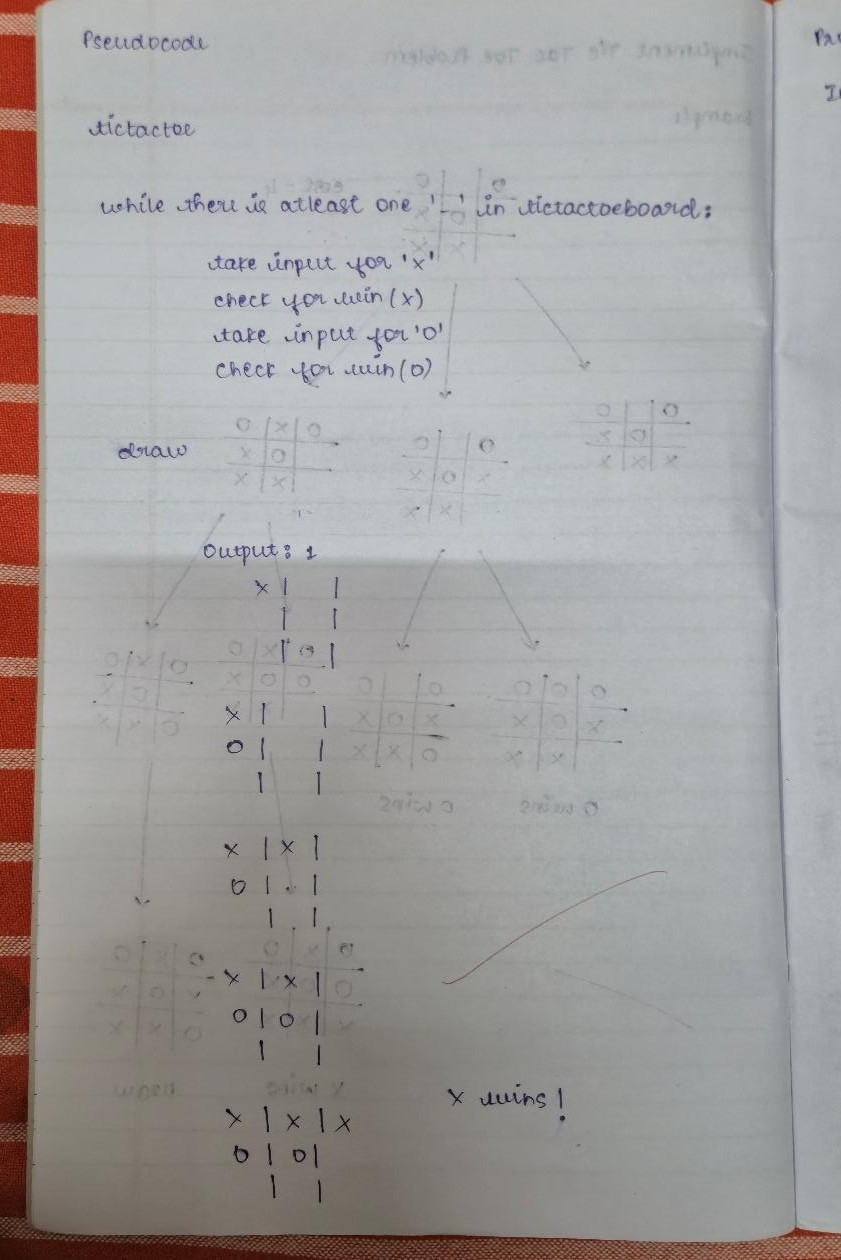 Pseudocode
tictactoe
while there is atleast one '_' in tictactoeboard:
take input for 'x'
check for win(x)
take input for 'O'
check for win(O)
draw
Output: 1
x | |
| |
| |
x | |
O | |
| |
x | x |
O | |
| |
x | x |
O | O |
| |
x wins!
x | x | x
O | O |
| |